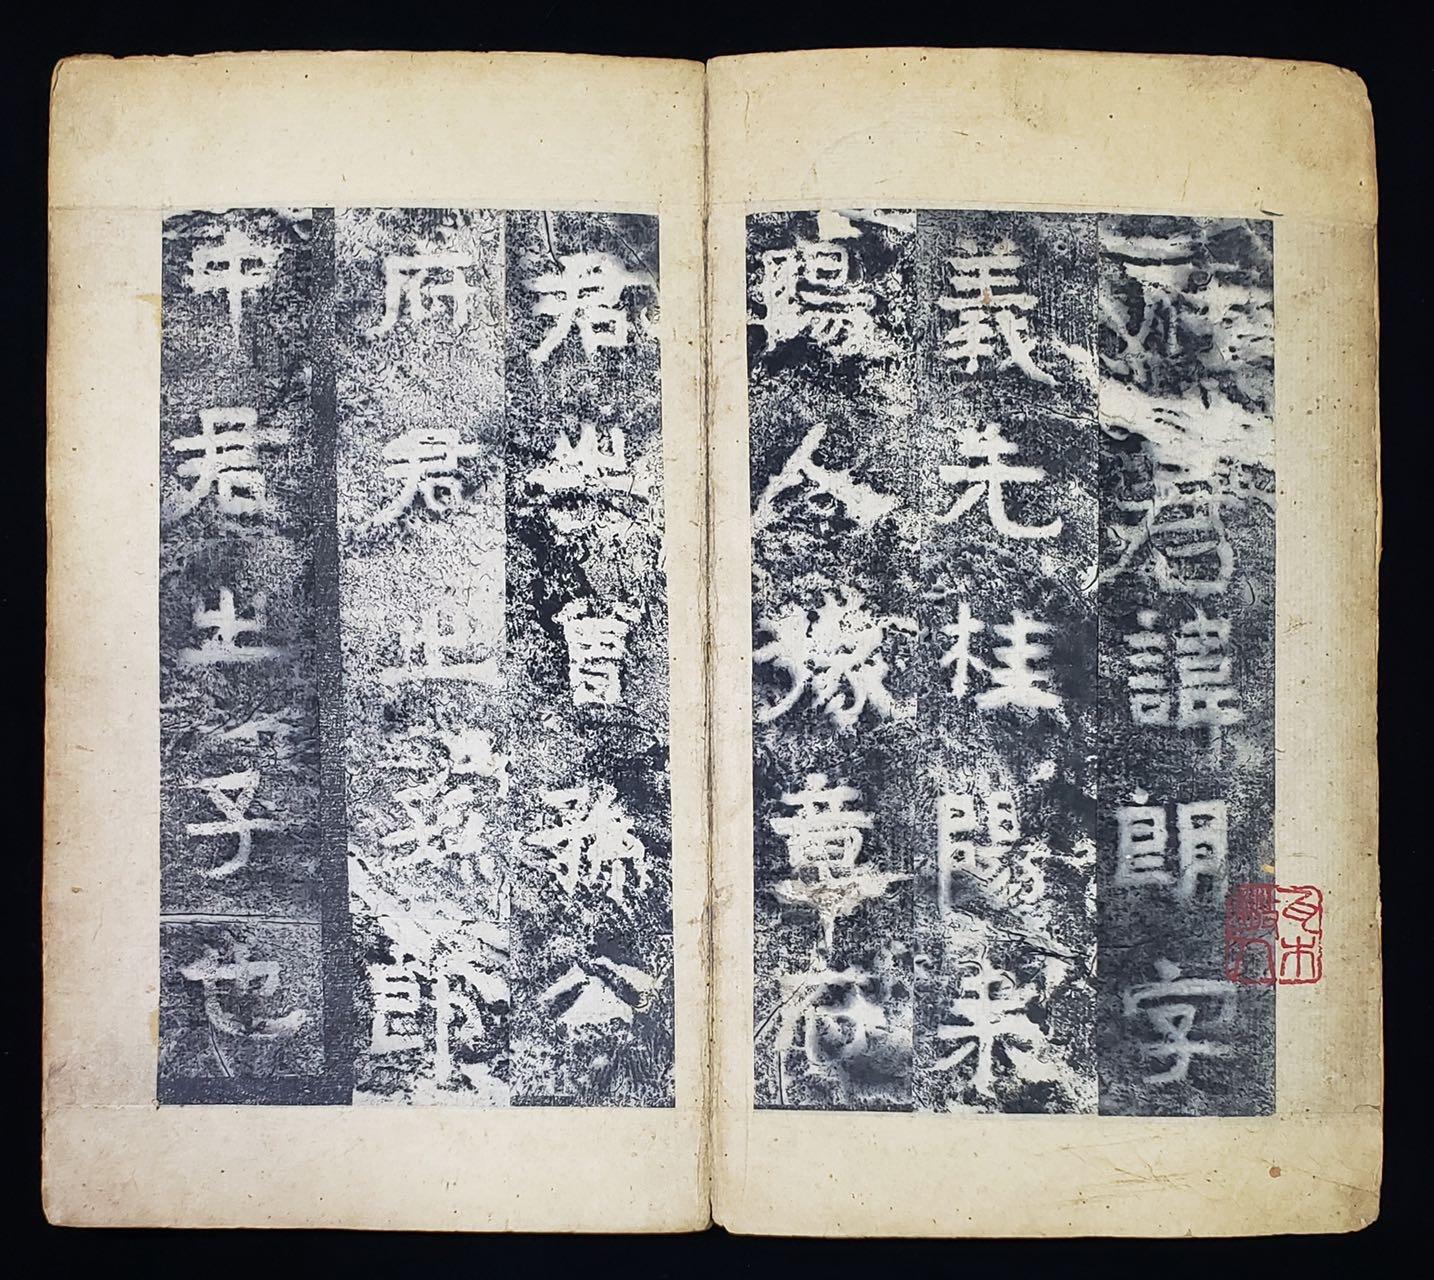 君諱朗字
義先桂陽耒
陽人豫章府
君之曾孫公
府君之孫郎
中君之子也